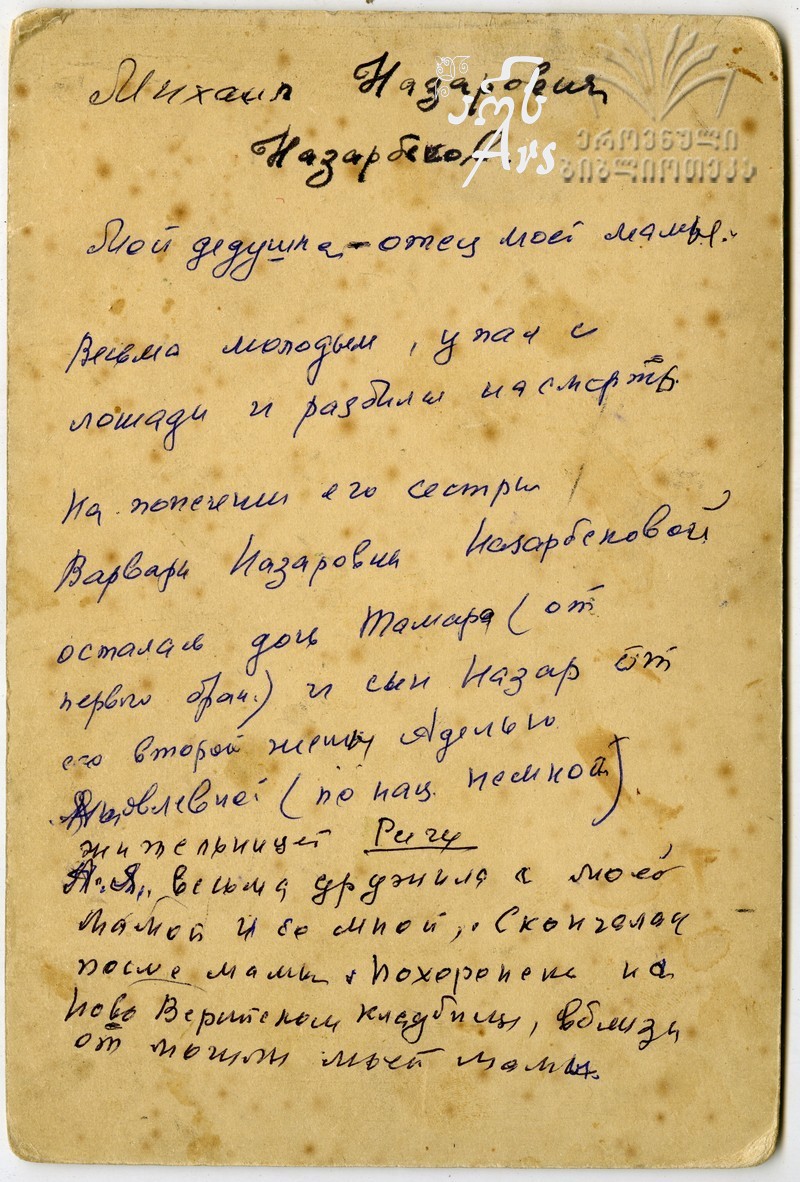 Михаил Назарович
Назарбеков.
Мой дедушка – отец моей мамы.
Весьма молодым, упал с
лошади и разбился насмерть.
На попечении его сестры
Варвары Назаровны Назарбековой
осталась дочь Тамара (от
первого брак.) и сын Назар от
его второй жены Аделью
Яковлевной (по нац. немкой).
жительницей Риги
А. Я., весьма дружила с моей
мамой и со мной, Скончалась
после мамы. Похоронена на
Ново Верийском кладбище, вблизи
от могилы моей мамы.
არს
Ars
ეროვნული
ბიბლიოთეკა